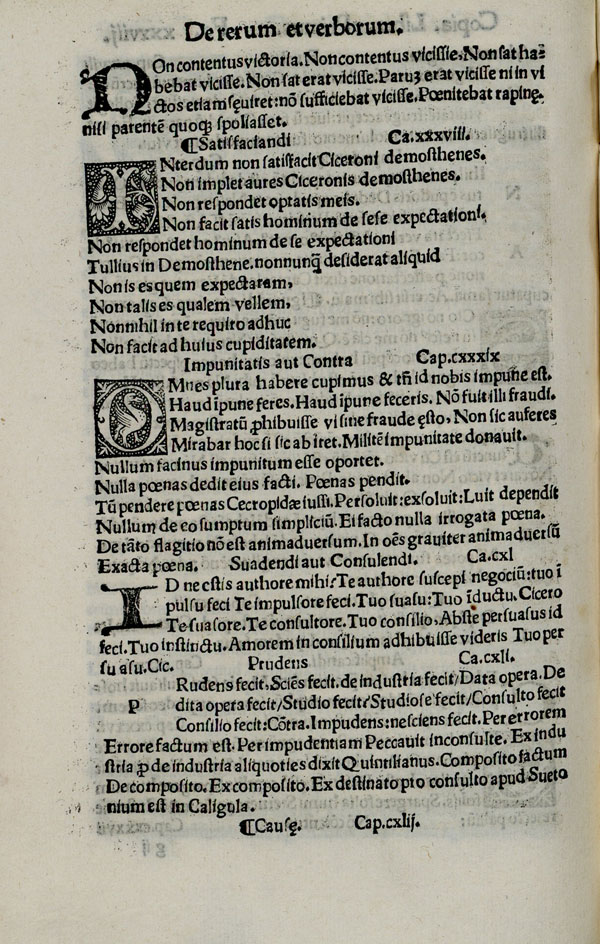 De rerum et verborum.
NOn contentus victoria. Non contentus vicissie, Non sat ha-
bebat vicisse. Non sat erat vicisse. Paruʒ erat vicisse ni in vi
ctos etiam sęuiret: nō sufficiebat vicisse. Pœnitebat rapinę.
nisi parentē quoqʒ spoliasset.
¶Satisfaciandi Ca.xxxviii.
INterdum non satisfacit Ciceroni demosthenes.
Non implet aures Ciceronis demosthenes.
Non respondet optatis meis.
Non facit satis hominum de sese expectationi.
Non respondet hominum de se expectationi
Tullius in Demosthene. nonnunq̄ desiderat aliquid
Non is es quem expectaram,
Non talis es qualem vellem,
Nonnihil in te requiro adhuc
Non facit ad huius cupiditatem.
Impunitatis aut Contra Cap.cxxxix
OMnes plura habere cupimus & tñ id nobis impune est.
Haud īpune feres. Haud īpune feceris. Nō fuit illi fraudi.
Magistratū ꝓhibuisse vi sine fraude ęsto, Non sic auferes
Mirabar hoc si sic ab iret. Militē impunitate donauit.
Nullum facinus impunitum esse oportet.
Nulla pœnas dedit eius facti. Pœnas pendit.
Tū pendere pœnas Cecropidæ iussi. Persoluit: exsoluit: Luit dependit
Nullum de eo sumptum simpliciū. Ei facto nulla irrogata pœna.
De tāto flagitio nō est animaduersum. In oēs grauiter animaduersū
Exacta pœna. Suadendi aut Consulendi. Ca.cxl
ID ne estis authore mihi? Te authore suscepi negociū: tuo ī
pulsu feci Te impulsore feci. Tuo suasu: Tuo īductu. Cicero
Te suasore. Te consultore. Tuo consilio, Abs te persuasus id
feci. Tuo instinctu. Amorem in consilium adhibuisse videris Tuo per
su asu. Cic. Prudens Ca.cxli.
Rudens fecit. Sciēs fecit. de industria fecit/Data opera. De
P dita opera fecit/Studio fecit? Studiose fecit/Consulto fecit
Consilio fecit: Cōtra. Impudens: nesciens fecit. Per errorem
Errore factum est. Per impudentiam Peccauit inconsulte. Ex indu
stria ꝓ de industria aliquoties dixit Quintilianus. Composito factum
De composito. Ex composito. Ex destinato pro consulto apud Sueto
nium est in Caligula.
¶Causę. Cap.cxlij.